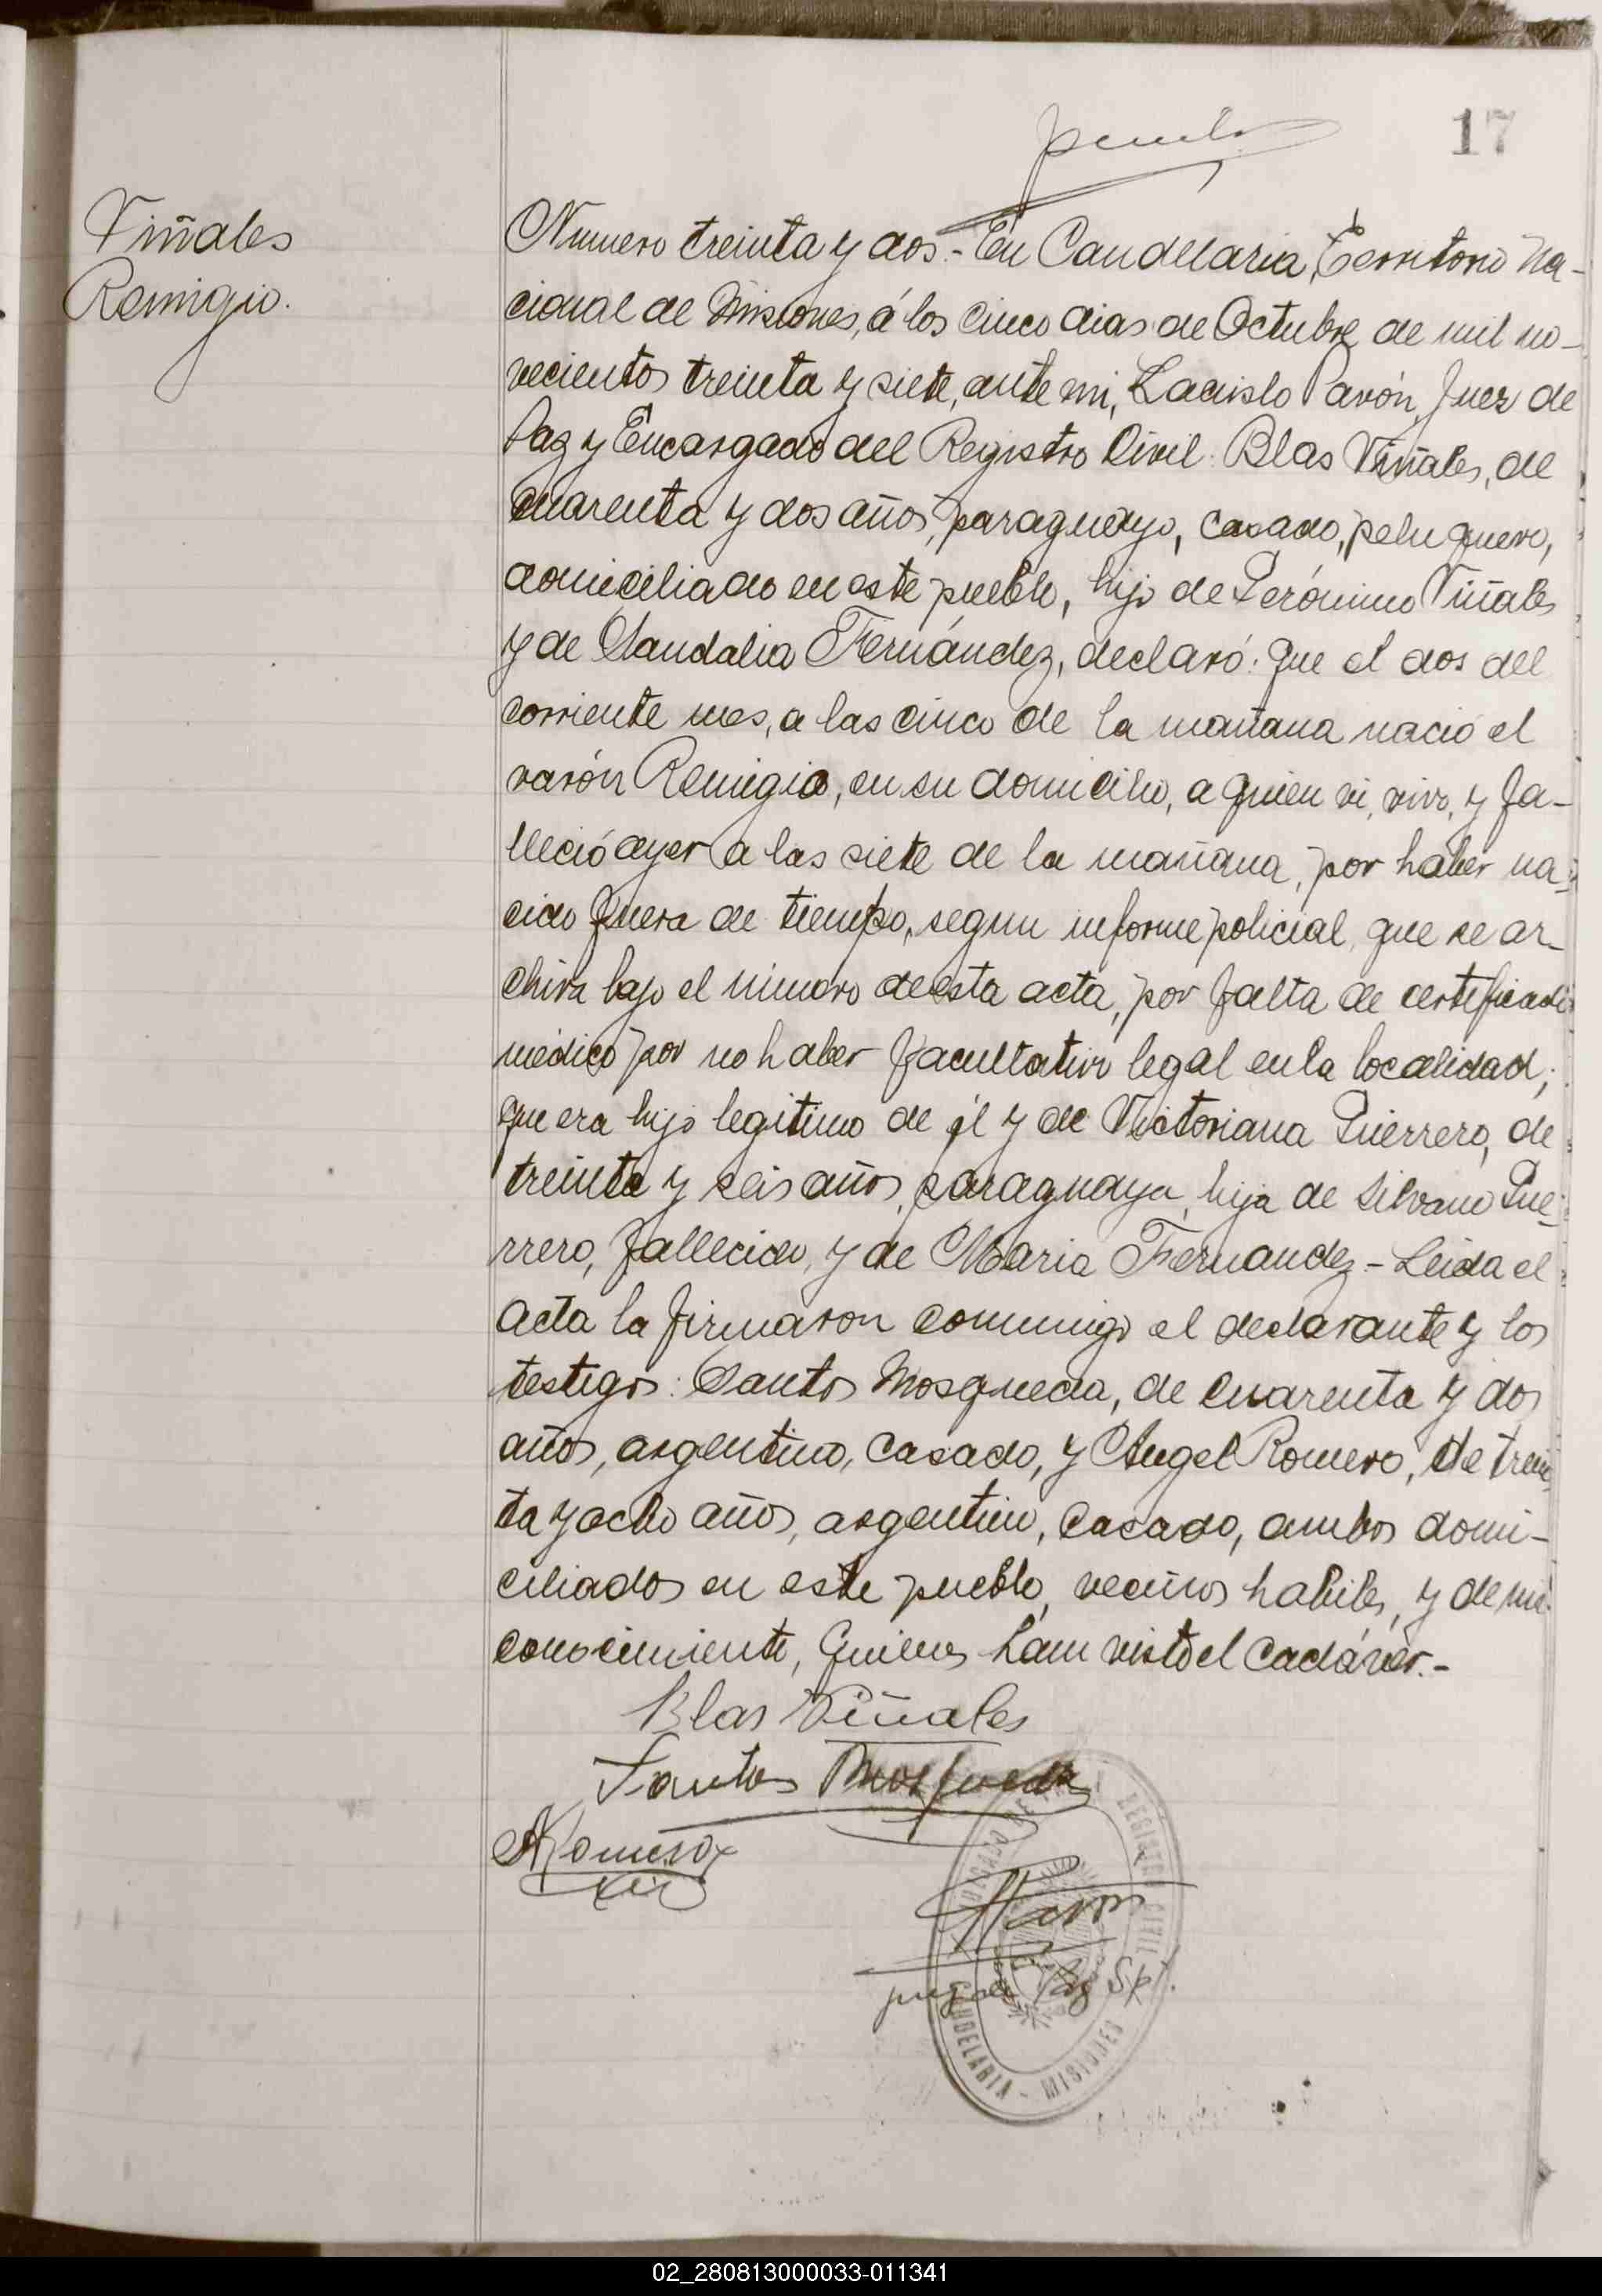 17
Viñales
Remigio.
Numero treinta y dos.- En Candelaria, Territorio Na-
cional de Misiones, á los cinco dias de Octubre de mil no-
vecientos treinta y siete, ante mi, Ladislo Pavón, Juez de
Paz y Encargado del Registro Civil: Blas Viñales, de
cuarenta y dos años, paraguayo, casado, peluquero,
domiciliado en este pueblo, hijo de Gerónimo Viñales
y de Sandalia Fernández, declaró: Que el dos del
corriente mes, a las cinco de la mañana nació el
varón Remigio, en su domicilio, a quien vi, vivo, y fa-
lleció ayer a las siete de la mañana, por haber na-
cido fuera de tiempo, segun informe policial, que se ar-
chiva bajo el número de esta acta, por falta de certificado
médico por no haber facultativo legal en la localidad;
que era hijo legitimo de él y de Victoriana Guerrero, de
treinta y seis años, paraguaya, hija de Silvano Gue-
rrero, fallecido, y de Maria Fernandez.- Leida el
acta la firmaron conmigo el declarante y los
testigos: Santos Mosqueda, de cuarenta y dos
años, argentino, casado, y Angel Romero, de trein
ta y ocho años, argentino, casado, ambos domi-
ciliados en este pueblo, vecinos habiles, y de mi
conocimiento, quienes han visto el cadáver.-
Blas Viñales
Santos Mosqueda
ARomero
Pavon
juez de Paz Spt.
JUZGADO DE
REGISTRO CIVIL
CANDELARIA - MISIONES
02_280813000033-011341